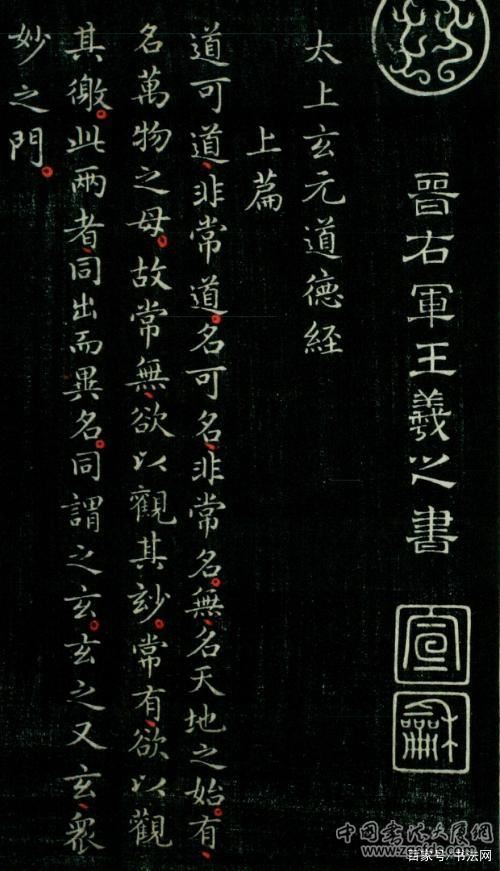 晉右軍王羲之書
宣
龢
太上玄元道德經
上篇
道可道、非常道。名可名、非常名。無、名天地之始。有、
名萬物之母。故常無、欲以觀其玅。常有、欲以觀
其徼。此兩者、同出而異名。同謂之玄。玄之又玄、衆
妙之門。
百家号/书法网